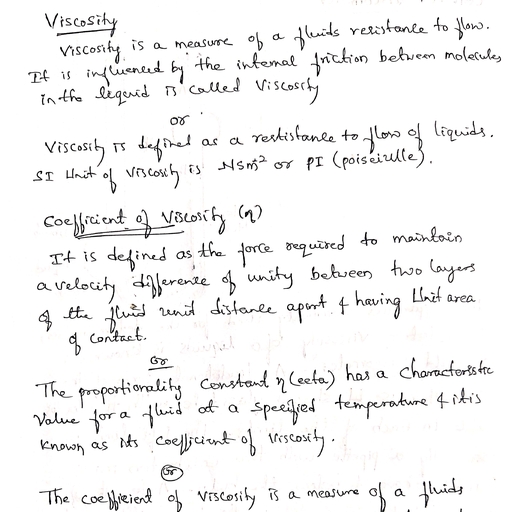 Viscosity
Viscosity is a measure of a fluids resistance to flow.
It is influenced by the internal friction between molecules
in the lequid is called Viscosity
or
Viscosity is defined as a restistance to flow of liquids.
SI Unit of Viscosity is NSm² or PI (poiseizlle).
Coefficient of Viscosity (η)
It is defined as the force required to maintain
a velocity difference of unity between two layers
of the fluid unit distance apart & having Unit area
of contact.
or
The proportionality constant η (eeta) has a characteristic
Value for a fluid at a specified temperature & it is
known as its coefficient of Viscosity.
or
The coefficient of Viscosity is a measure of a fluids